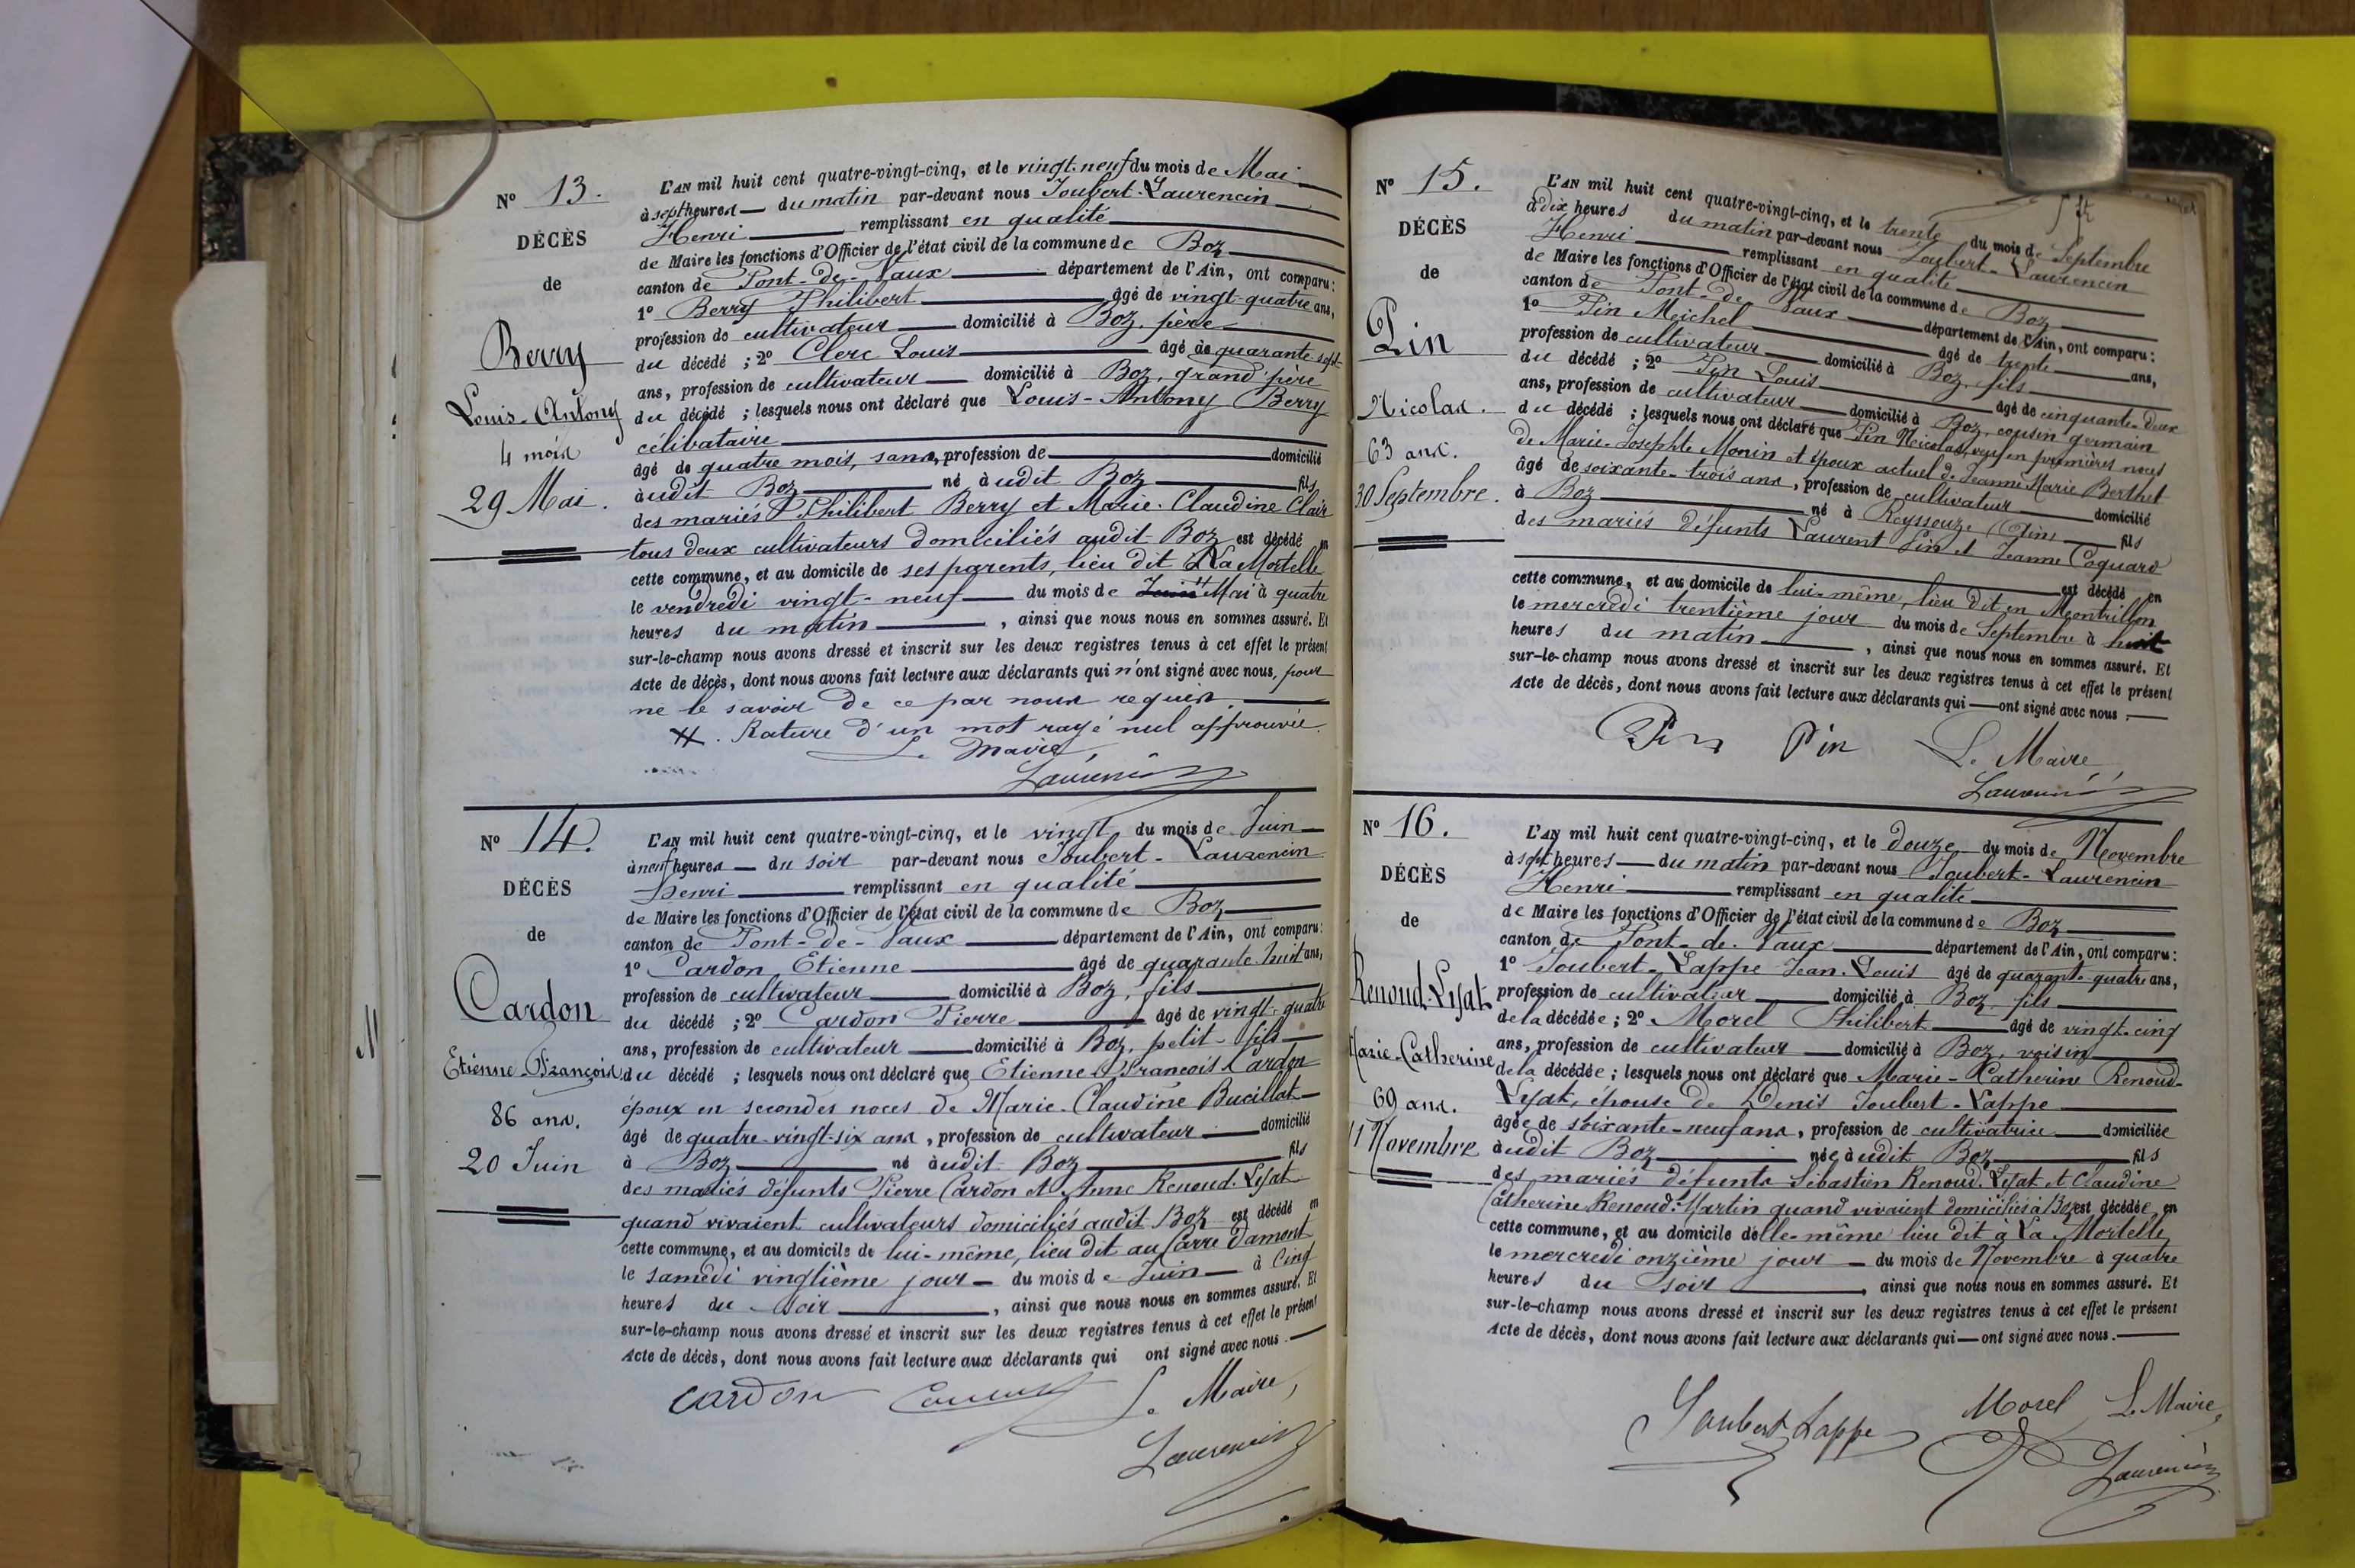 N° 13.
DÉCÈS
de
Berry
Louis-Antony
4 mois
29 Mai.
L'AN mil huit cent quatre-vingt-cinq, et le vingt-neuf du mois de Mai
à sept heures du matin par-devant nous Joubert-Laurencin
Henri remplissant en qualité
de Maire les fonctions d'Officier de l'état civil de la commune de Boz
canton de Pont-de-Vaux département de l'Ain, ont comparu:
1° Berry Philibert âgé de vingt-quatre ans,
profession de cultivateur domicilié à Boz, père
du décédé ; 2° Clerc Louis âgé de quarante-sept
ans, profession de cultivateur domicilié à Boz, grand'père
du décédé ; lesquels nous ont déclaré que Louis-Antony Berry
célibataire
âgé de quatre mois, sans, profession de domicilié
à udit Boz né à udit Boz fils
des mariés Philibert Berry et Marie-Claudine Clair
tous deux cultivateurs domiciliés audit Boz est décédé en
cette commune, et au domicile de ses parents, lieu dit La Mortelle
le vendredi vingt-neuf du mois de Juin Mai à quatre
heures du matin , ainsi que nous nous en sommes assuré. Et
sur-le-champ nous avons dressé et inscrit sur les deux registres tenus à cet effet le présent
Acte de décès, dont nous avons fait lecture aux déclarants qui n'ont signé avec nous, pour
ne le savoir de ce par nous requis.
Rature d'un mot rayé nul approuvée.
Le Maire
Laurencin
N° 14.
DÉCÈS
de
Cardon
Etienne-François
86 ans.
20 Juin
L'AN mil huit cent quatre-vingt-cinq, et le vingt du mois de Juin
à neuf heures du soir par-devant nous Joubert-Laurencin
Henri remplissant en qualité
de Maire les fonctions d'Officier de l'état civil de la commune de Boz
canton de Pont-de-Vaux département de l'Ain, ont comparu:
1° Cardon Etienne âgé de quarante-huit ans,
profession de cultivateur domicilié à Boz, fils
du décédé ; 2° Cardon Pierre âgé de vingt-quatre
ans, profession de cultivateur domicilié à Boz, petit-fils
du décédé ; lesquels nous ont déclaré que Etienne-François Cardon
époux en secondes noces de Marie-Claudine Bucillat
âgé de quatre-vingt-six ans, profession de cultivateur domicilié
à Boz né à udit Boz fils
des mariés défunts Pierre Cardon et Anne Renoud-Lyat
quand vivaient cultivateurs domiciliés audit Boz est décédé en
cette commune, et au domicile de lui-même, lieu dit au Carre Damont
le samedi vingtième jour du mois de Juin à cinq
heures du soir , ainsi que nous nous en sommes assuré. Et
sur-le-champ nous avons dressé et inscrit sur les deux registres tenus à cet effet le présent
Acte de décès, dont nous avons fait lecture aux déclarants qui ont signé avec nous.
Cardon
Le Maire,
Laurencin
N° 15.
DÉCÈS
de
Pin
Nicolas.
63 ans.
30 Septembre.
L'AN mil huit cent quatre-vingt-cinq, et le trente du mois de Septembre
à dix heures du matin par-devant nous Joubert-Laurencin
Henri remplissant en qualité
de Maire les fonctions d'Officier de l'état civil de la commune de Boz
canton de Pont-de-Vaux département de l'Ain, ont comparu:
1° Pin Meichel âgé de trente ans,
profession de cultivateur domicilié à Boz, fils
du décédé ; 2° Pin Louis âgé de cinquante-deux
ans, profession de cultivateur domicilié à Boz, cousin germain
du décédé ; lesquels nous ont déclaré que Pin Nicolas, veuf en premières noces
de Marie-Josephte Monin et époux actuel de Jeanne Marie Berthet
âgé de soixante-trois ans, profession de cultivateur domicilié
à Boz né à Reyssouze (Ain) fils
des mariés défunts Laurent Pin et Jeanne Coquard
est décédé en
cette commune, et au domicile de lui-même, lieu dit en Montrillon
le mercredi trentième jour du mois de Septembre à huit
heures du matin , ainsi que nous nous en sommes assuré. Et
sur-le-champ nous avons dressé et inscrit sur les deux registres tenus à cet effet le présent
Acte de décès, dont nous avons fait lecture aux déclarants qui ont signé avec nous.
Pin Pin Le Maire
Laurencin
N° 16.
DÉCÈS
de
Renoud-Lyat
Marie-Catherine
69 ans.
11 Novembre
L'AN mil huit cent quatre-vingt-cinq, et le douze du mois de Novembre
à sept heures du matin par-devant nous Joubert-Laurencin
Henri remplissant en qualité
de Maire les fonctions d'Officier de l'état civil de la commune de Boz
canton de Pont-de-Vaux département de l'Ain, ont comparu:
1° Joubert-Lappe Jean-Louis âgé de quarante-quatre ans,
profession de cultivateur domicilié à Boz, fils
de la décédée ; 2° Morel Philibert âgé de vingt-cinq
ans, profession de cultivateur domicilié à Boz, voisin
de la décédée ; lesquels nous ont déclaré que Marie-Catherine Renoud-
Lyat, épouse de Denis Joubert-Lappe
âgée de soixante-neuf ans, profession de cultivatrice domiciliée
à udit Boz née à udit Boz fils
des mariés défunts Sébastien Renoud-Lyat et Claudine
Catherine Renoud-Martin quand vivaient domiciliés à Boz est décédée en
cette commune, et au domicile d'elle-même lieu dit à La Mortelle
le mercredi onzième jour du mois de Novembre à quatre
heures du soir , ainsi que nous nous en sommes assuré. Et
sur-le-champ nous avons dressé et inscrit sur les deux registres tenus à cet effet le présent
Acte de décès, dont nous avons fait lecture aux déclarants qui ont signé avec nous.
Joubert Lappe Morel Le Maire,
Laurencin